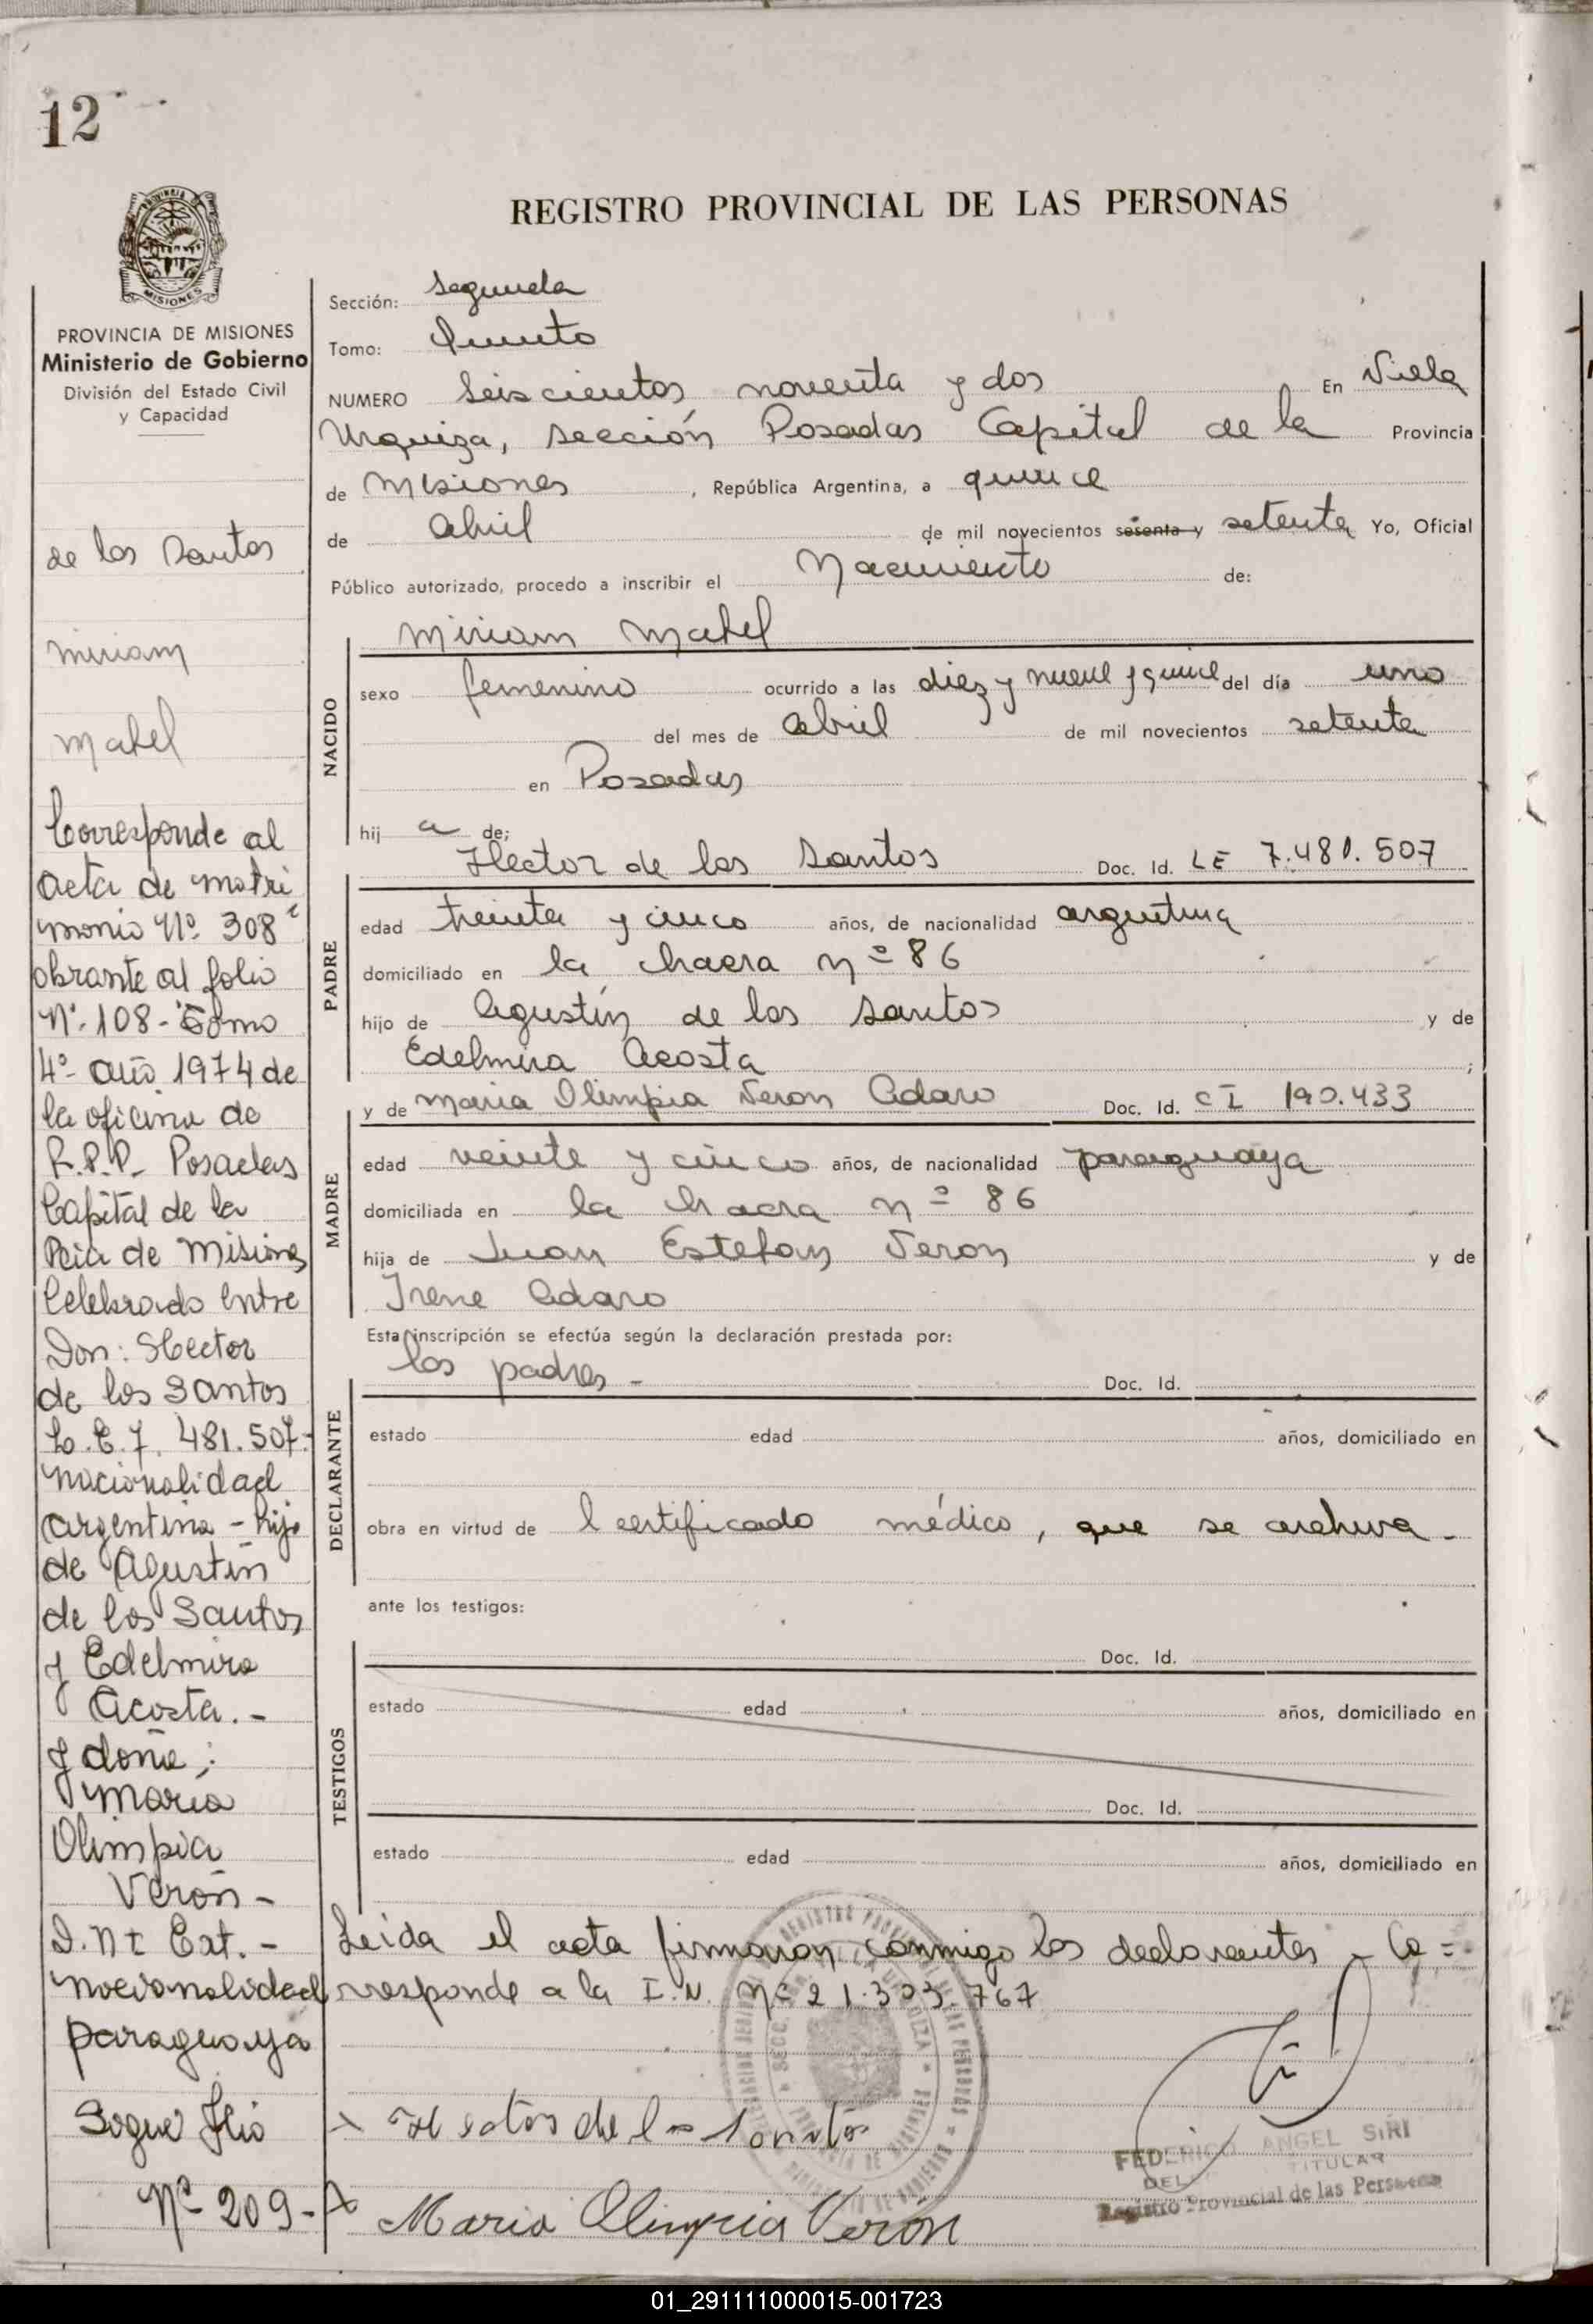 12
MISIONES
PROVINCIA DE MISIONES
Ministerio de Gobierno
División del Estado Civil
y Capacidad
de los Santos
Miriam
Mabel
Corresponde al
acta de matri
monio Nº 308
obrante al folio
Nº 108 - Tomo
4º año 1974 de
la oficina de
R.P.P. Posadas
Capital de la
Pcia de Misiones
Celebrado entre
Don: Hector
de los Santos
L.E. 7.481.507.-
nacionalidad
argentina - hijo
de Agustin
de los Santos
y Edelmira
Acosta.-
y doña;
Maria
Olimpia
Verón -
D.NI Ext.-
nacionalidad
paraguaya
Sigue flio
Nº 209-
REGISTRO PROVINCIAL DE LAS PERSONAS
Sección: segunda
Tomo: Quinto
NUMERO Seiscientos noventa y dos En Villa
Urquiza, sección Posadas Capital de la Provincia
de Misiones, República Argentina, a quince
de abril de mil novecientos sesenta y setenta Yo, Oficial
Público autorizado, procedo a inscribir el Nacimiento de:
Miriam Mabel
NACIDO
sexo femenino ocurrido a las diez y nueve y quince del día uno
del mes de abril de mil novecientos setenta
en Posadas
hij a de:
Hector de los Santos Doc. Id. LE 7.481.507
PADRE
edad treinta y cinco años, de nacionalidad argentina
domiciliado en la chacra nº 86
hijo de Agustín de los Santos y de
Edelmira Acosta;
y de Maria Olimpia Veron Adaro Doc. Id. CI 190.433
MADRE
edad veinte y cinco años, de nacionalidad paraguaya
domiciliada en la chacra nº 86
hija de Juan Estefan Veron y de
Irene Adaro
Esta inscripción se efectúa según la declaración prestada por:
los padres - Doc. Id.
DECLARANTE
estado edad años, domiciliado en
obra en virtud de l certificado médico, que se archiva -
ante los testigos:
Doc. Id.
TESTIGOS
estado edad años, domiciliado en
Doc. Id.
estado edad años, domiciliado en
Leída el acta firmaron conmigo los declarantes - Co=
rresponde a la I.N. Nº 21.303.767
Hector de los Santos
Maria Olimpia Verón
FEDERICO ANGEL SIRI
TITULAR
DEL
Registro Provincial de las Personas
01_291111000015-001723